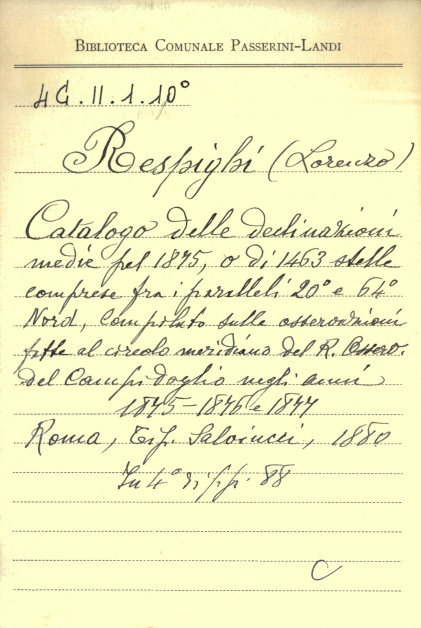 BIBLIOTECA COMUNALE PASSERINI-LANDI
4G.II.1.10°
Respighi (Lorenzo)
Catalogo delle declinazioni
medie pel 1875, o di 1463 stelle
comprese fra i paralleli 20° e 64°
Nord, compilato sulle osservazioni
fatte al circolo meridiano del R. Osserv.
del Campidoglio negli anni
1875-1876 e 1877
Roma, Tip. Salviucci, 1880
In 4° di pp. 88
C